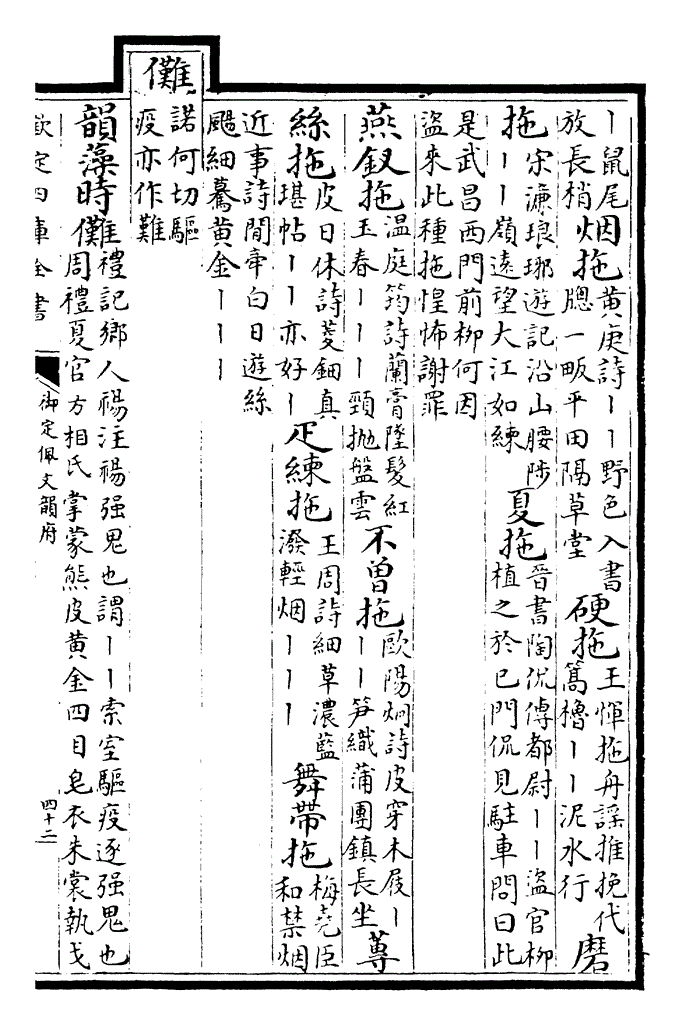 丨鼠尾放長梢烟拖黄庚詩丨丨野色入書牕一畈平田隔草堂硬拖王惲拖舟謡推挽代篙櫓丨丨泥水行磨
拖宋濂琅琊遊記沿山腰陟丨丨嶺遠望大江如練夏拖晉書陶侃傳都尉丨丨盜官柳植之於已門侃見駐車問曰此
是武昌西門前柳何因盜來此種拖惶怖謝罪
燕釵拖温庭筠詩蘭膏墜髮紅玉春丨丨丨頸抛盤雲不曽拖歐陽炯詩皮穿木屐丨丨丨笋織蒲團鎮長坐蓴
絲拖皮日休詩菱鈿真堪帖丨丨亦好丨疋練拖王周詩細草濃藍潑輕烟丨丨丨舞帶拖梅堯臣和禁烟
近事詩閒牽白日遊絲颺細驀黄金丨丨丨
儺諾何切驅疫亦作難
韻藻時儺禮記鄉人禓注禓强鬼也謂丨丨索室驅疫逐强鬼也周禮夏官方相氏掌蒙熊皮黄金四目皂衣朱裳執戈
欽定四庫全書
御定佩文韻府
四十二